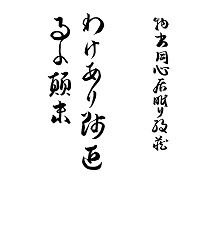 物書同心居眠り紋蔵
わけあり師匠
事の顛末